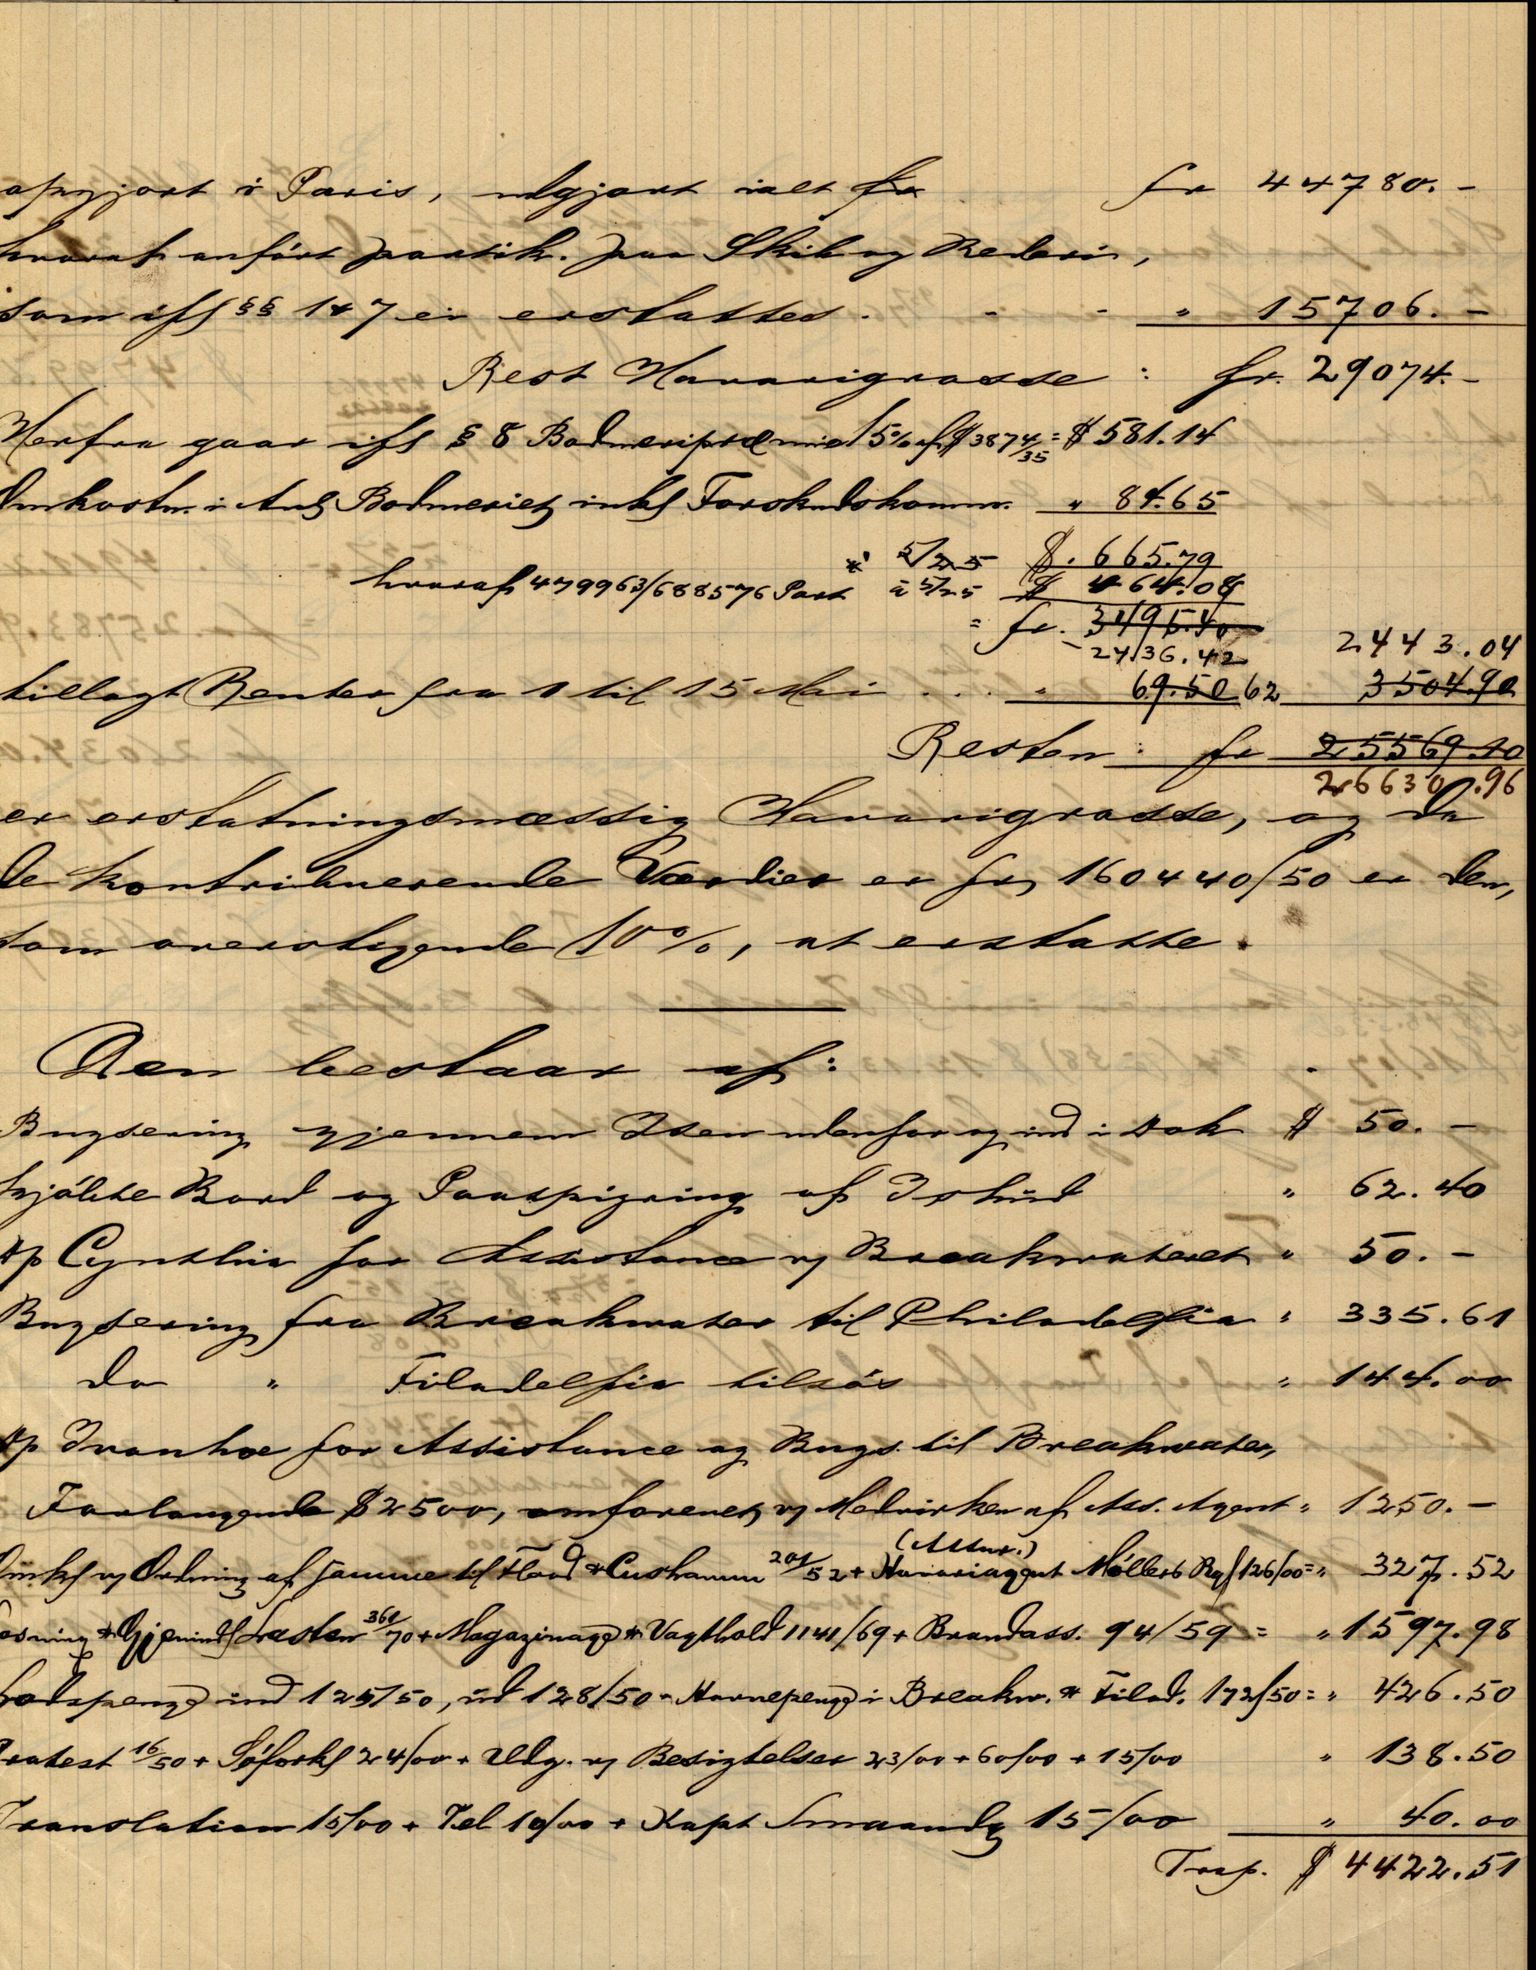 opgjort i Paris, udgjort ialt fr fr 44780.-
hvoraf anført partik. paa Skib og Rederi,
som ifl §§ 147 ei erstattes. - - - " 15706.-
Rest Havarigrosse : fr. 29074.-
Herfra gaar ifl § 8 Bodmeripræmie 15% af $ 3874/35 = $ 581.14
Omkostn. i Anl Bodmeriet inkl Forskudskomm. " 84.65
5/25 $. 665.79
hvoraf 479963/688576 Part à 5/25 $ 464.08
= fr. 3495.40
2436.42 2443.04
tillagt Renter fra 1 til 15 Mai . . . " 69.50 62 3504.90
Resten : fr 25569.10
26630.96
er erstatningsmæssig Havarigrosse, og da
de kontribuerende Værdier er fr 160440/50 er den,
som overstigende 10%, at erstatte.
Den bestaar af:
Bugsering gjennem Isen udenfor og ind i Dok $ 50.-
kjøbte Bord og Paaspigring af Ishud " 62.40
Dp Cynthia for Assistance v Breakwateret " 50.-
Bugsering fra Breakwater til Philadelfia " 335.61
do " Filadelfia tilsøs " 144.00
Dp Ivanhoe for Assistance og Bugs. til Breakwater,
Forlangende $ 2500, omforenet v Medvirken af Ass. Agent " 1250.-
Omk v Ordning af samme til Flood & Cushamm 201/52 + (Assur.) Havariagent Møllers Rg 126/00 = " 327.52
Losning & Gjenindl Lasten 361/70 + Magazinage & Vagthold 1141/69 + Brandass. 94/59 = " 1597.98
Lodspenge ind 125/50, ud 128/50 - Havnepenge i Breakw. & Filad. 172/50 = " 426.50
Protest 16/50 + Søforkl 24/00 + Udg. v Besigtelser 23/00 + 60/00 + 15/00 " 138.50
Translation 15/00 + Tel 10/00 + Kapt Smaaudg 15/00 " 40.00
Trsp. $ 4422.51